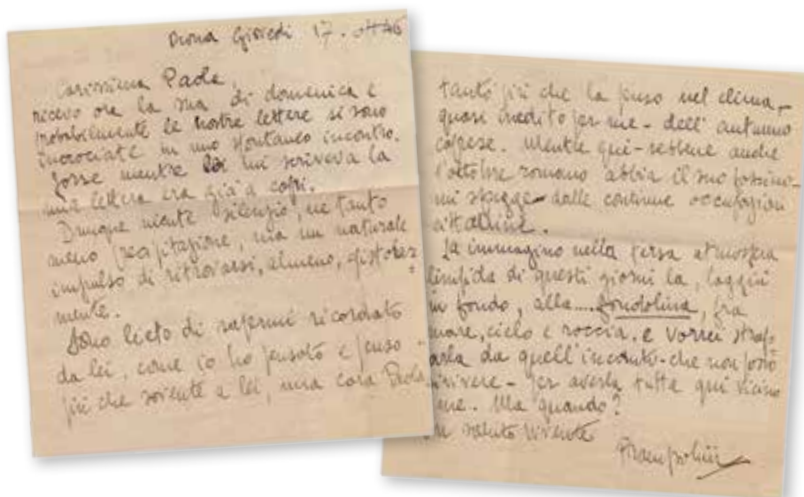 Roma Giovedì 17. ott 46
Carissima Paola,
ricevo ora la sua di domenica e
probabilmente le nostre lettere si sono
incrociate in uno spontaneo incontro.
Forse mentre lei mi scriveva la
mia lettera era già a
Dunque niente silenzio, ne tanto
meno precipitazione, ma un naturale
impulso di ritrovarsi, almeno, epistolar=
mente.
Sono lieto di sapermi ricordato
da lei, come io ho pensato e penso
più che sovente a lei, mia cara Paola
tanto più che la penso nel clima,
quasi inedito per me - dell'autunno
caprese. Mentre qui - sebbene anche
l'ottobre romano abbia il suo fascino -
mi sfugge dalle continue occupazioni
cittadine.
La immagino nella tersa atmosfera
limpida di questi giorni la, laggiù
in fondo, alla.... fra
mare, cielo e roccia. e vorrei strap
arla da quell'incanto - che non posso
vivere - per averla tutta qui vicino
me. Ma quando?
Un saluto vivente
Prampolini